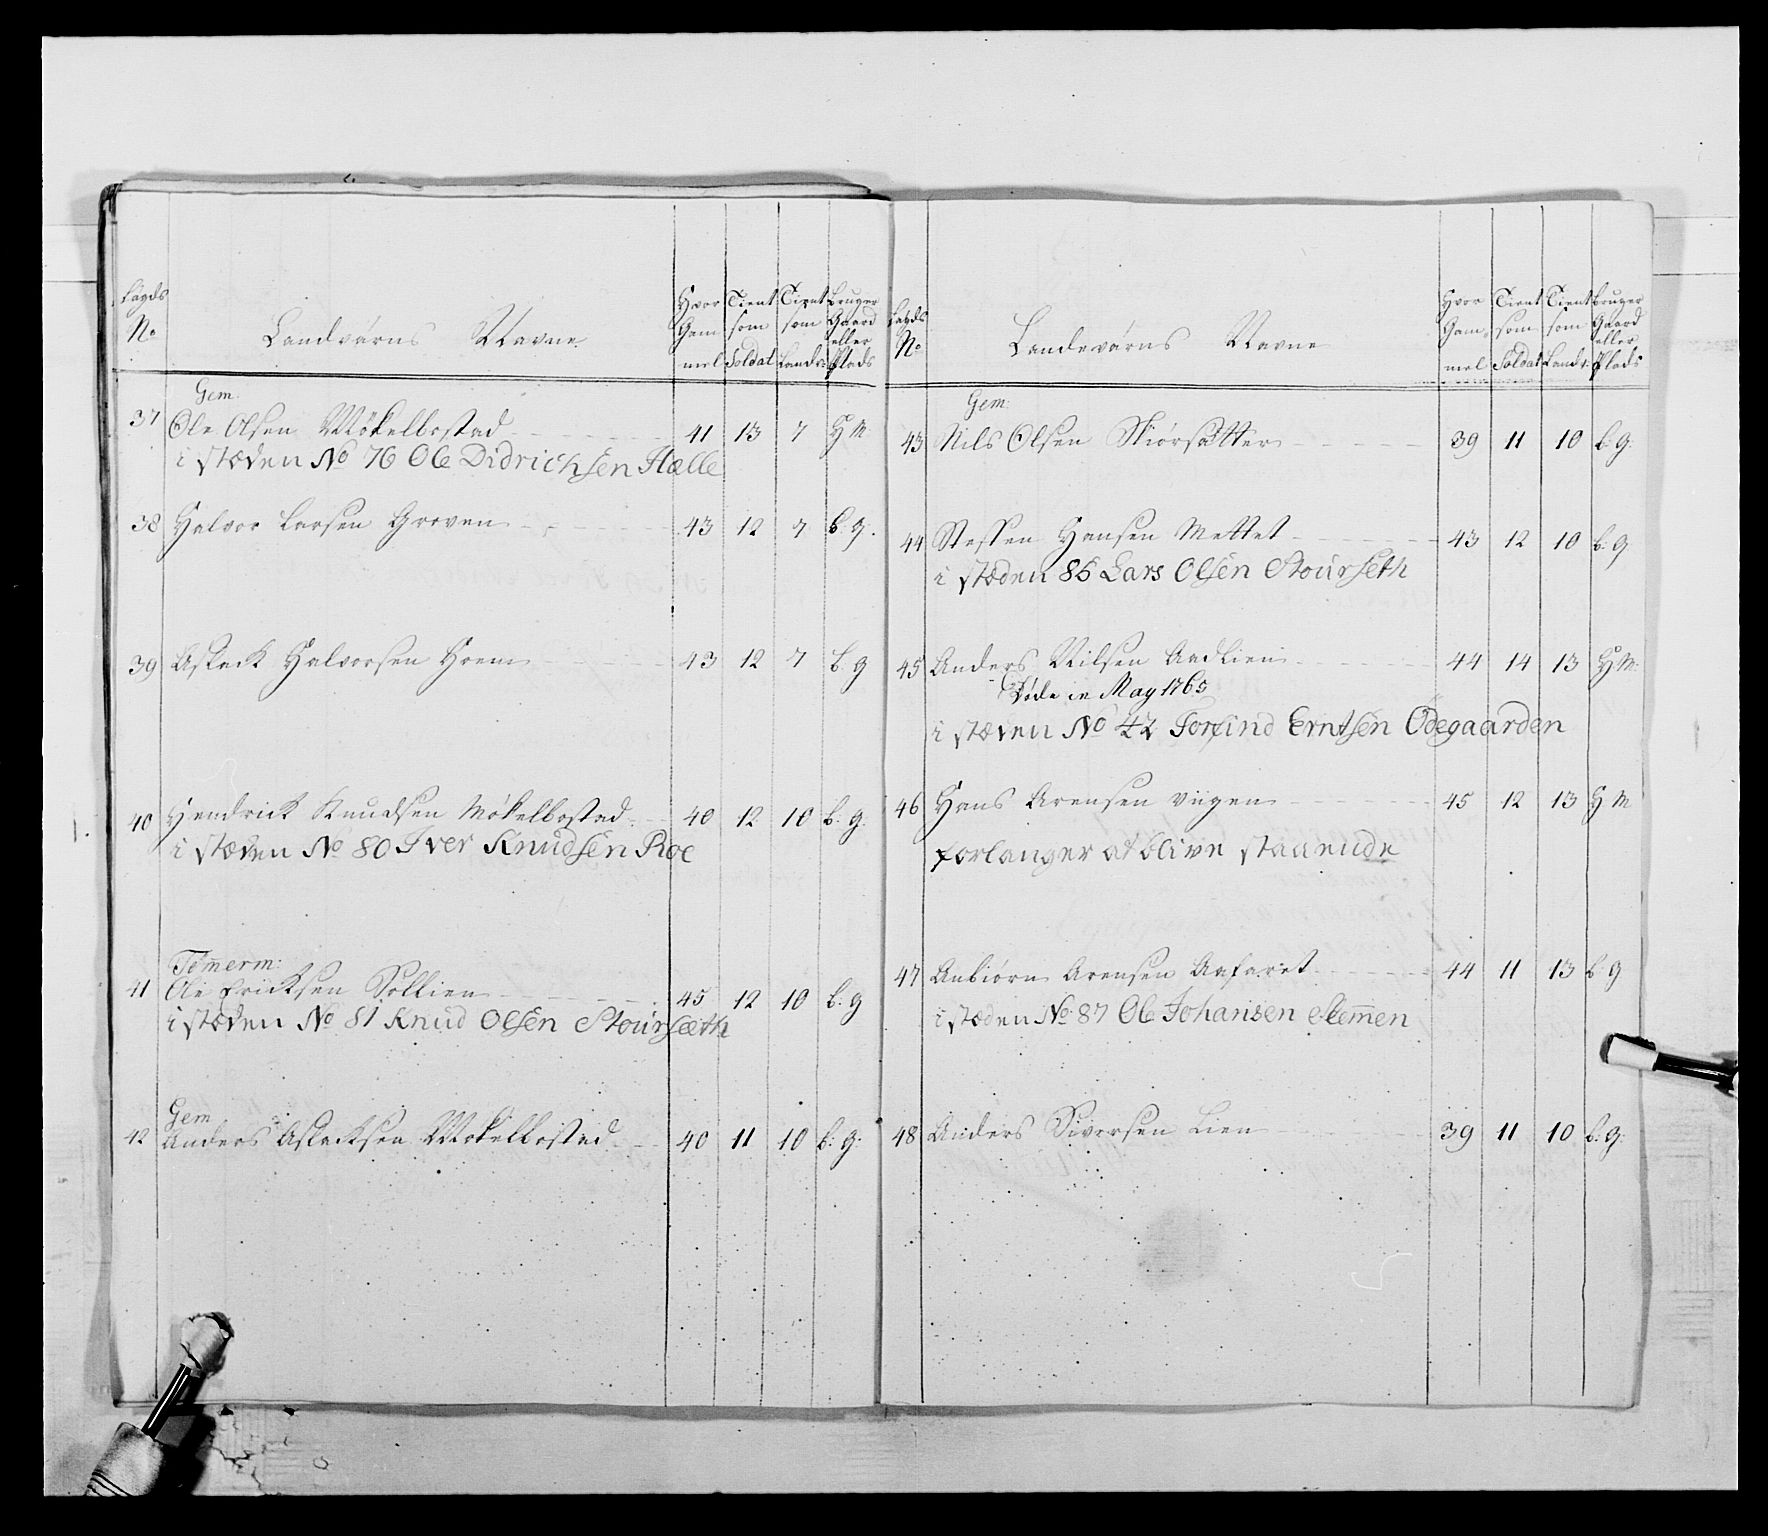 Lägds No
Landvärns Navne
Hvor Gam mel
Tient som Soldat
Tient som Landv:
Bruger Gaard eller Plads
Gem:
37 Ole Olsen Mökelbostad 41 13 7 H M
i stæden No 76 Ole Didrichsen Hælle
38 Halvor Larsen Groven 43 12 7 b. g.
39 Aslack Halvorsen Hoem 43 12 7 b. g
40 Hendrick Knudsen Mökelbostad 40 12 10 b. g.
i stæden No 80 Iver Knudsen Roe
Temmerm:
41 Ole Ericksen Sollien 45 12 10 b. g
i stæden No 81 Knud Olsen Stoursæth
Gem
42 Anders Aslacksen Mokelbostad 40 11 10 b. g.
Layds No
Landevärns Navne
Hvor Gam mel
Tient som Soldat
Tient som Landv:
bruger Gaard eller Plads
Gem:
43 Nils Olsen Skiörsätter 39 11 10 b. g.
44 Steffen Hansen Mettet 43 12 10 b. g
i stæden 85 Lars Olsen Stourseth
45 Anders Nilsen Aadlien 44 14 13 H M.
Döde in May 1765
i stæden No 42 Erntsen Ödegaarden
46 Hans Arensen viigen 45 12 13 H M
forlanger at blive staaende
47 Anbiörn Arensen Aafaret 44 11 13 b. g
i stæden No. 87 Ole Johansen Slemmen
48 Anders Siversen Lien 39 11 10 b. g.